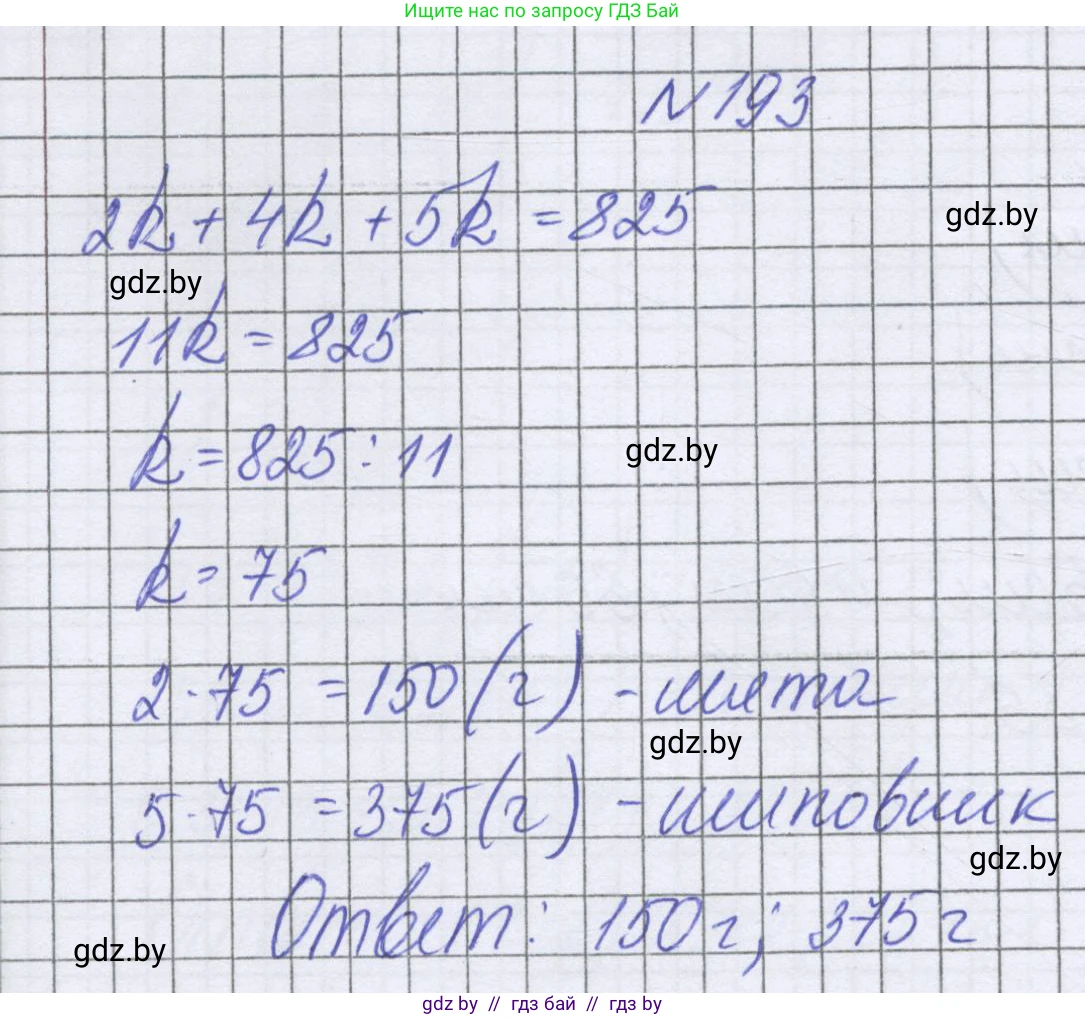 Ищите нас по запросу ГДЗ Бай
N 193
2k + 4k + 5k = 825
gdz.by
gdz.by
11k = 825
k = 825 : 11
gdz.by
k = 75
2 · 75 = 150 (г) - мята
gdz.by
5 · 75 = 375 (г) - шиповник
gdz.by
Ответ: 150 г; 375 г
gdz.by
gdz by // гдз бай // гдз by